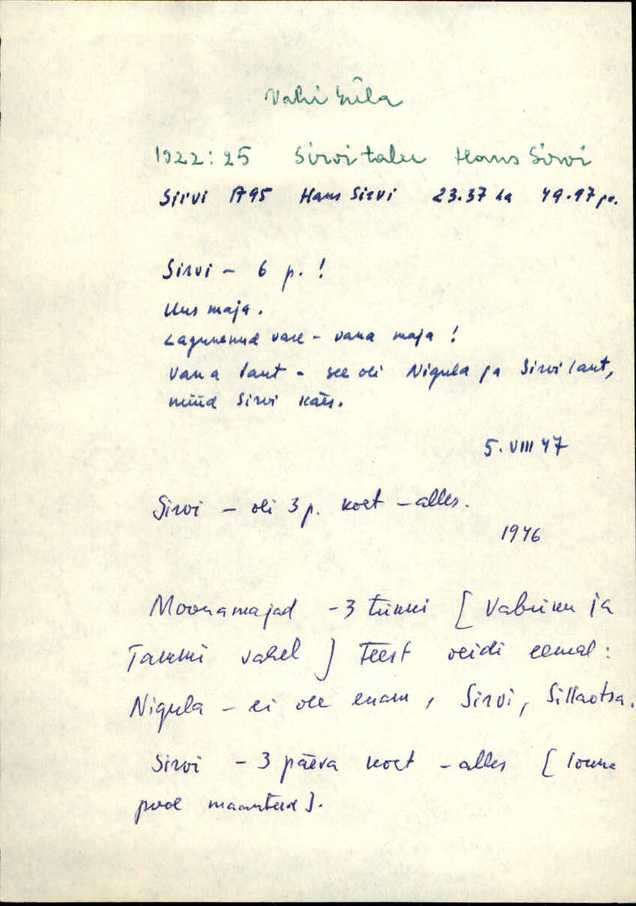 Vahi küla
1922: 25 Sirvi talu Hans Sirvi
Sirvi A95 Hans Sirvi 23.37 ha 49.97 pr.
Sirvi - 6 p. !
Uus maja.
Lagunenud vare - vana maja !
Vana laut - see oli Nigula ja Sirvi laut,
nüüd Sirvi käes.
5. VIII 47
Sirvi - oli 3 p. koht - alles.
1946
Moonamajad - 3 tükki [ Vabriku ja
Tammi vahel ] Teest veidi eemal:
Nigula - ei ole enam, Sirvi, Sillaotsa.
Sirvi - 3 päeva koht - alles [ lõuna
pool maanteed ].